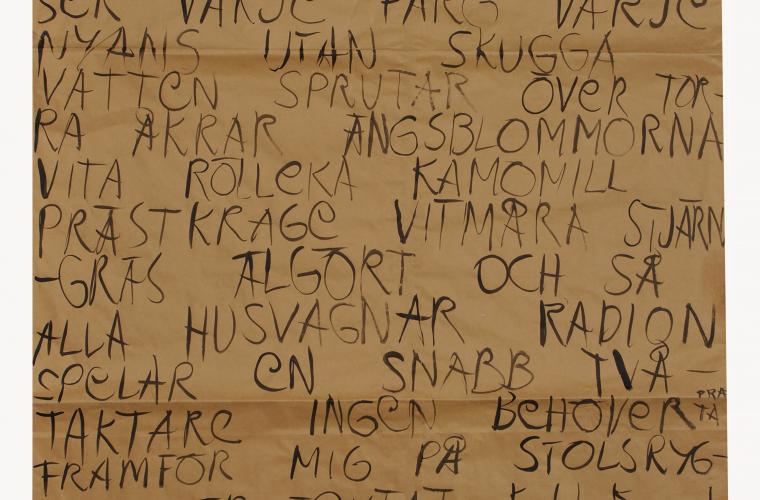 SER VARJE FÄRG VARJE
NYANS UTAN SKUGGA
VATTEN SPRUTAR ÖVER TOR-
RA ÅKRAR ÄNGSBLOMMORNA
VITA RÖLLEKA KAMOMILL
PRÄSTKRAGE VITMÅRA STJÄRN
-GRÄS ÄLGÖRT OCH SÅ
ALLA HUSVAGNAR RADION
SPELAR EN SNABB TVÅ-
TAKTARE INGEN BEHÖVER PRA
TA
FRAMFÖR MIG PÅ STOLSRYG-